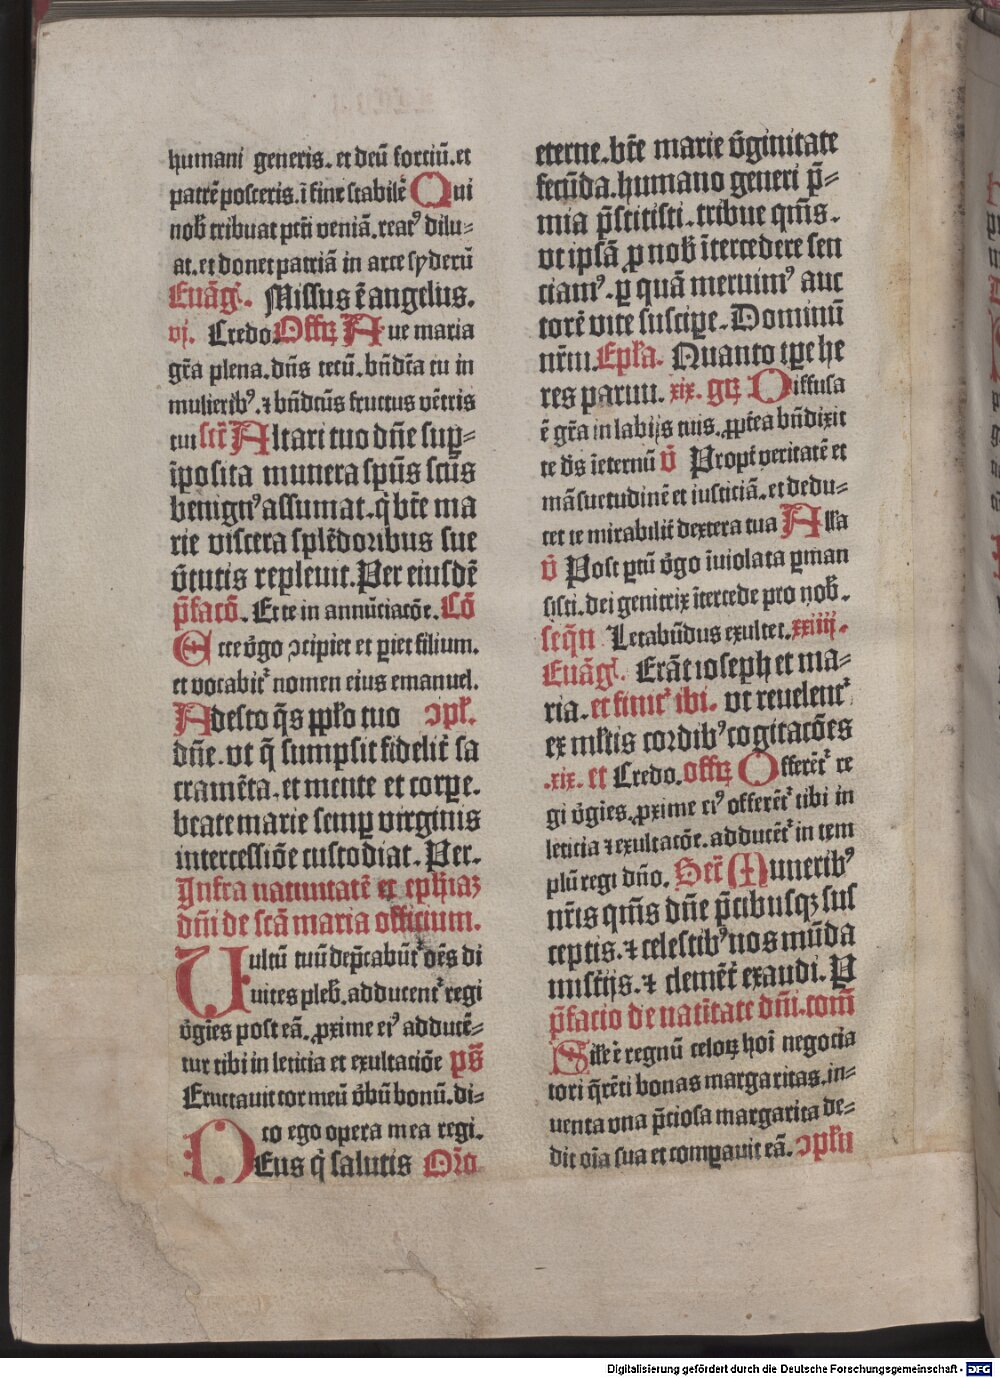 humani generis. et deū fortiū. et
patrē posteris. ī fine stabilē Qui
nob̄ tribuat pctī veniā. reatꝰ dilu⸗
at. et donet patriā in arce syderū
Euāgl̄. Missus ē angelus.
vj. Credo. Offꝝ Aue maria
gr̄a plena. dn̄s tecū. bn̄dc̄a tu in
mulieribꝰ. ⁊ bn̄dc̄us fructus vētris
tui secr̄ Altari tuo dn̄e sup̄⸗
īposita munera sp̄us sc̄us
benignꝰ assumat. q̇ btē ma
rie viscera splēdoribus sue
v̄tutis repleuit. Per eiusdē
p̄facō. Et te in annūciacōe. Cō
Ecce v̄go ↄcipiet et ꝑiet filium.
et vocabit᷑ nomen eius emanuel.
Adesto q̄s pplo tuo ↄpl̄.
dn̄e. vt q̄ sumpsit fidelit᷑ sa
cramēta. et mente et corpe.
beate marie semꝑ virginis
intercessiōe custodiat. Per.
Infra natiuitatē et eph̄iaꝫ
dn̄i de sc̄a maria officium.
Uultū tuū dep̄cabūt᷑ oēs di
uites pleb̄. adducent᷑ regi
v̄gīes post eā. ꝓxime eiꝰ adducē⸗
tur tibi in leticia et exultaciōe ps̄
Eructauit cor meū v̄bū bonū. di⸗
co ego opera mea regi.
Deus q̇ salutis Orō
eterne. btē marie v̄ginitate
fecūda. humano generi p̄⸗
mia p̄stitisti. tribue qm̄s.
vt ipsā ꝓ nob̄ ītercedere sen
ciamꝰ. ꝑ quā meruimꝰ auc
torē vite suscipe. Dominū
nr̄m. Epl̄a. Quanto tpe he
res paruu. xix. gꝝ Diffusa
ē gr̄a in labijs tuis. ꝓpt̄ea bn̄dixit
te ds̄ īeternū v̄ Propt̄ veritatē et
māsuetudinē et iusticiā. et dedu⸗
cet te mirabilit̄ dextera tua Alla
v̄ Post ꝑtū v̄go īuiolata ꝑman
sisti. dei genitrix ītercede pro nob̄.
seqn̄ Letabūdus exultet. xxiiij.
Euāgl̄. Erāt ioseph et ma⸗
ria. et finit᷑ ibi. vt reuelent᷑
ex ml̄tis cordibꝰ cogitacōes
.xix. et Credo. offꝝ Offerēt᷑ re
gi v̄gīes. ꝓxime eiꝰ offerēt᷑ tibi in
leticia ⁊ exultacōe. adducēt᷑ in tem
plū regi dn̄o. Secr̄ Muneribꝰ
nr̄is qm̄s dn̄e p̄cibusqꝫ sus
ceptis. ⁊ celestibꝰ nos mūda
mist̄ijs. ⁊ clemēt̄ exaudi. P
p̄facio de natītate dn̄i. com̄
Sile ē regnū celoꝝ hoī negocia
tori q̄rēti bonas margaritas. in⸗
uenta vna p̄ciosa margarita de⸗
dit oīa sua et compauit eā. ↄpln̄
Digitalisierung gefördert durch die Deutsche Forschungsgemeinschaft - DFG